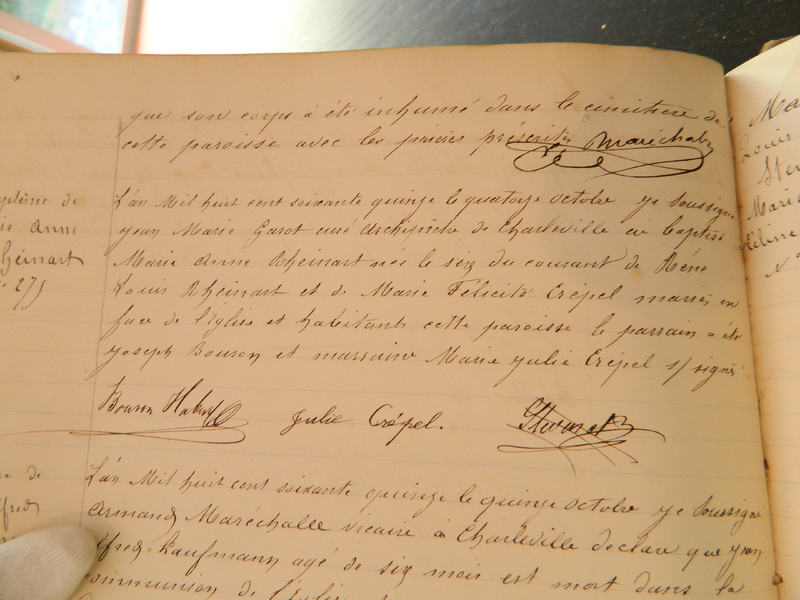 que son corps a été inhumé dans le cimetière de
cette paroisse avec les prières prescrites Maréchalle
ptème de
ie Anne
heinart
275
L'an Mil huit cent soixante quinze le quatorze octobre je soussigné
jean Marie Garot curé archiprêtre de Charleville ai baptisé
Marie Anne Rheinart née le six du courant de Réné
Louis Rheinart et de Marie Félicité Crépel mariés en
face de l'Eglise et habitants cette paroisse le parrain a été
joseph Bouron et marraine Marie julie Crépel s/ signés
Bouron Hubert
julie Crépel.
L'an Mil huit cent soixante quinze le quinze octobre je soussigné
Armand Maréchalle vicaire à Charleville déclare que jean
lfred Kaufmann agé de six mois est mort dans la
ommunion de l'Eglise
e de
fred
Ma
Louis
Ste
Marie
élène
N